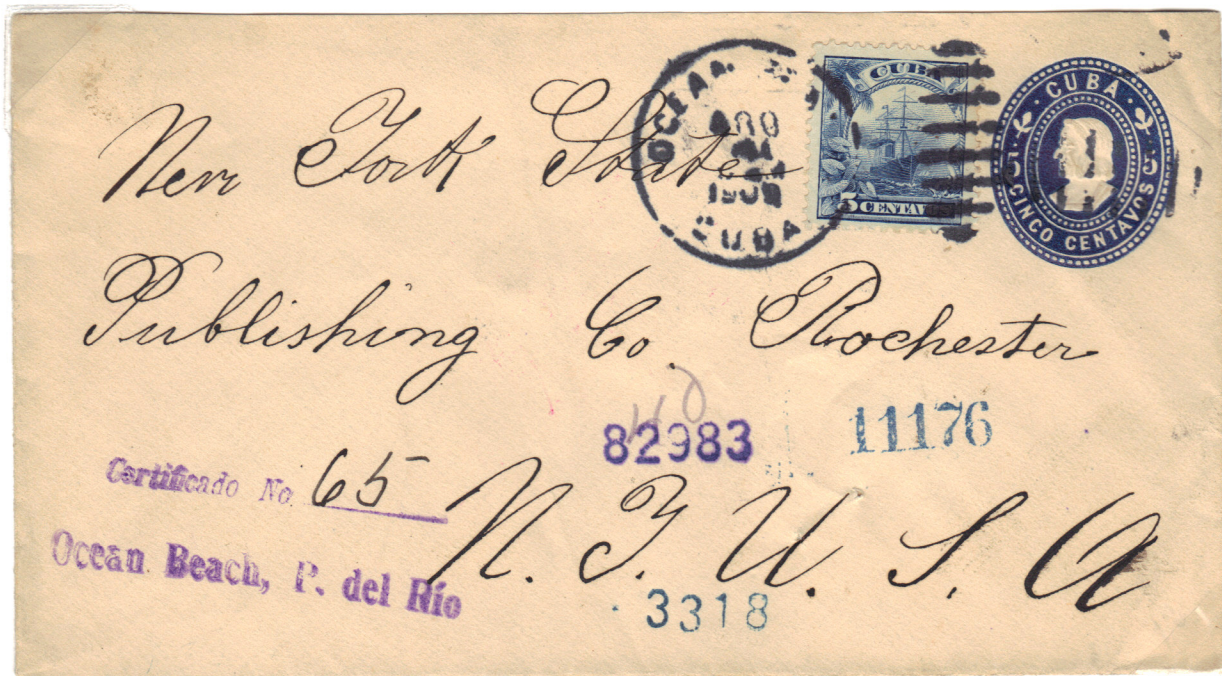 OCEAN
AGO
190
CUBA
CUBA
5 CENTAVOS
CUBA
5 5
CINCO CENTAVOS
New York State
Publishing Co. Rochester
82983
11176
Certificado No. 65
N. Y. U. S. A
Ocean Beach, P. del Río
3318